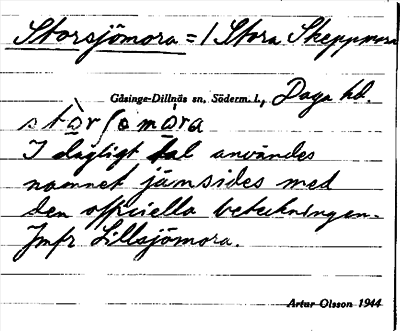 Storsjömora = / Stora Skeppmora
Gåsinge-Dillnäs sn, Söderm. l., Daga hd.
I dagligt tal användes
namnet jämsides med
den officiella beteckningen.
Jmfr Lillsjömora.
Artur Olsson 1944